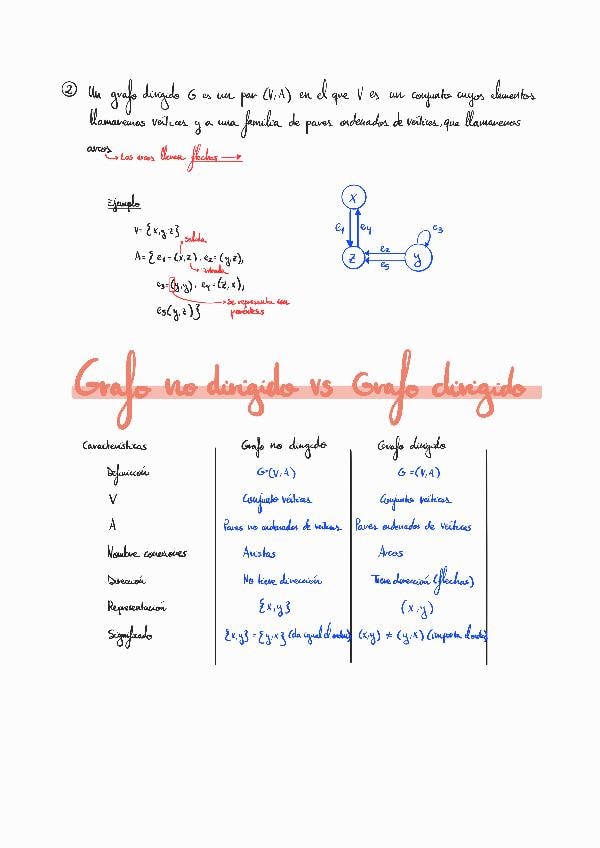 2 Un grafo dirigido G es un par (V,A) en el que V es un conjunto cuyos elementos
llamaremos vértices y a una familia de pares ordenados de vértices, que llamaremos
arcos
Los arcos llevan flechas
Ejemplo
V= {x,y,z}
salida
A= { e1 = (x,z), e2= (y,z),
entrada
e3= (y,y), e4 = (z,x),
se representa con
paréntesis
e5(y,z)}
x
e1 e4
e3
z
e2
y
e5
Grafo no dirigido vs Grafo dirigido
Características Grafo no dirigido Grafo dirigido
Definición G=(V,A) G =(V,A)
V Conjunto vértices Conjunto vértices
A Pares no ordenados de vértices Pares ordenados de vértices
Nombre conexiones Aristas Arcos
Dirección No tiene dirección Tiene dirección (flechas)
Representación {x,y} (x,y)
Significado {x,y} = {y,x} (da igual el orden) (x,y) ≠ (y,x) (importa el orden)